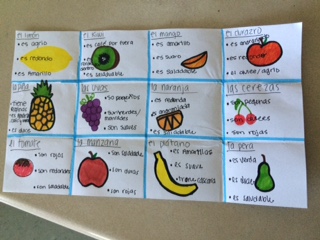 el limón
• es agrio
• es redondo
• es Amarillo
el kiwi
• es café por fuera
• es saludable
el mango
• es amarillo
• es suave
• es saludable
el durazno
• es anaranjado
• es redondo
• es dulce/agrio
la piña
• tiene
• es dulce
las uvas
• son pequeñas
• son verdes/
moradas
• son suaves
la naranja
• es redonda
• es anaranjada
• es saludable
las cerezas
• son pequeñas
• son dulces
• son rojas
el tomate
• son rojos
• son redondos
• son saludable
la manzana
• son saludable
• son duras
• son rojas
el plátano
• es Amarillos
• es suave
• tiene cáscara
la pera
• es verde
• es dulce
• es saludable